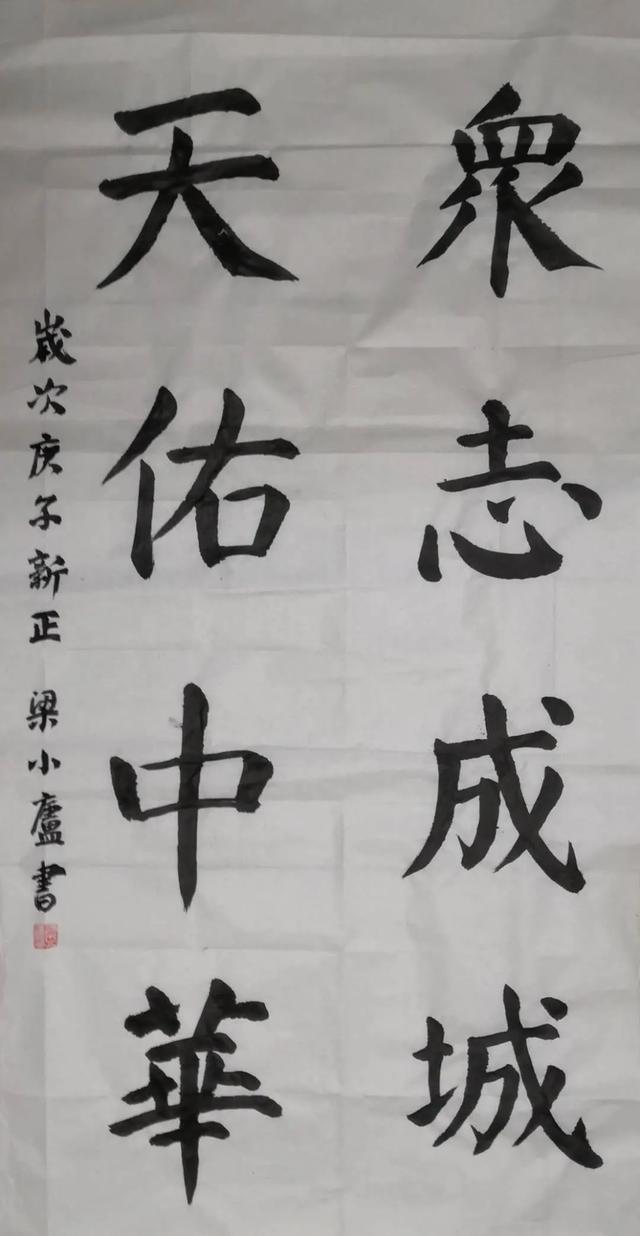 眾志成城
天佑中華
歲次庚子新正 梁小廬書